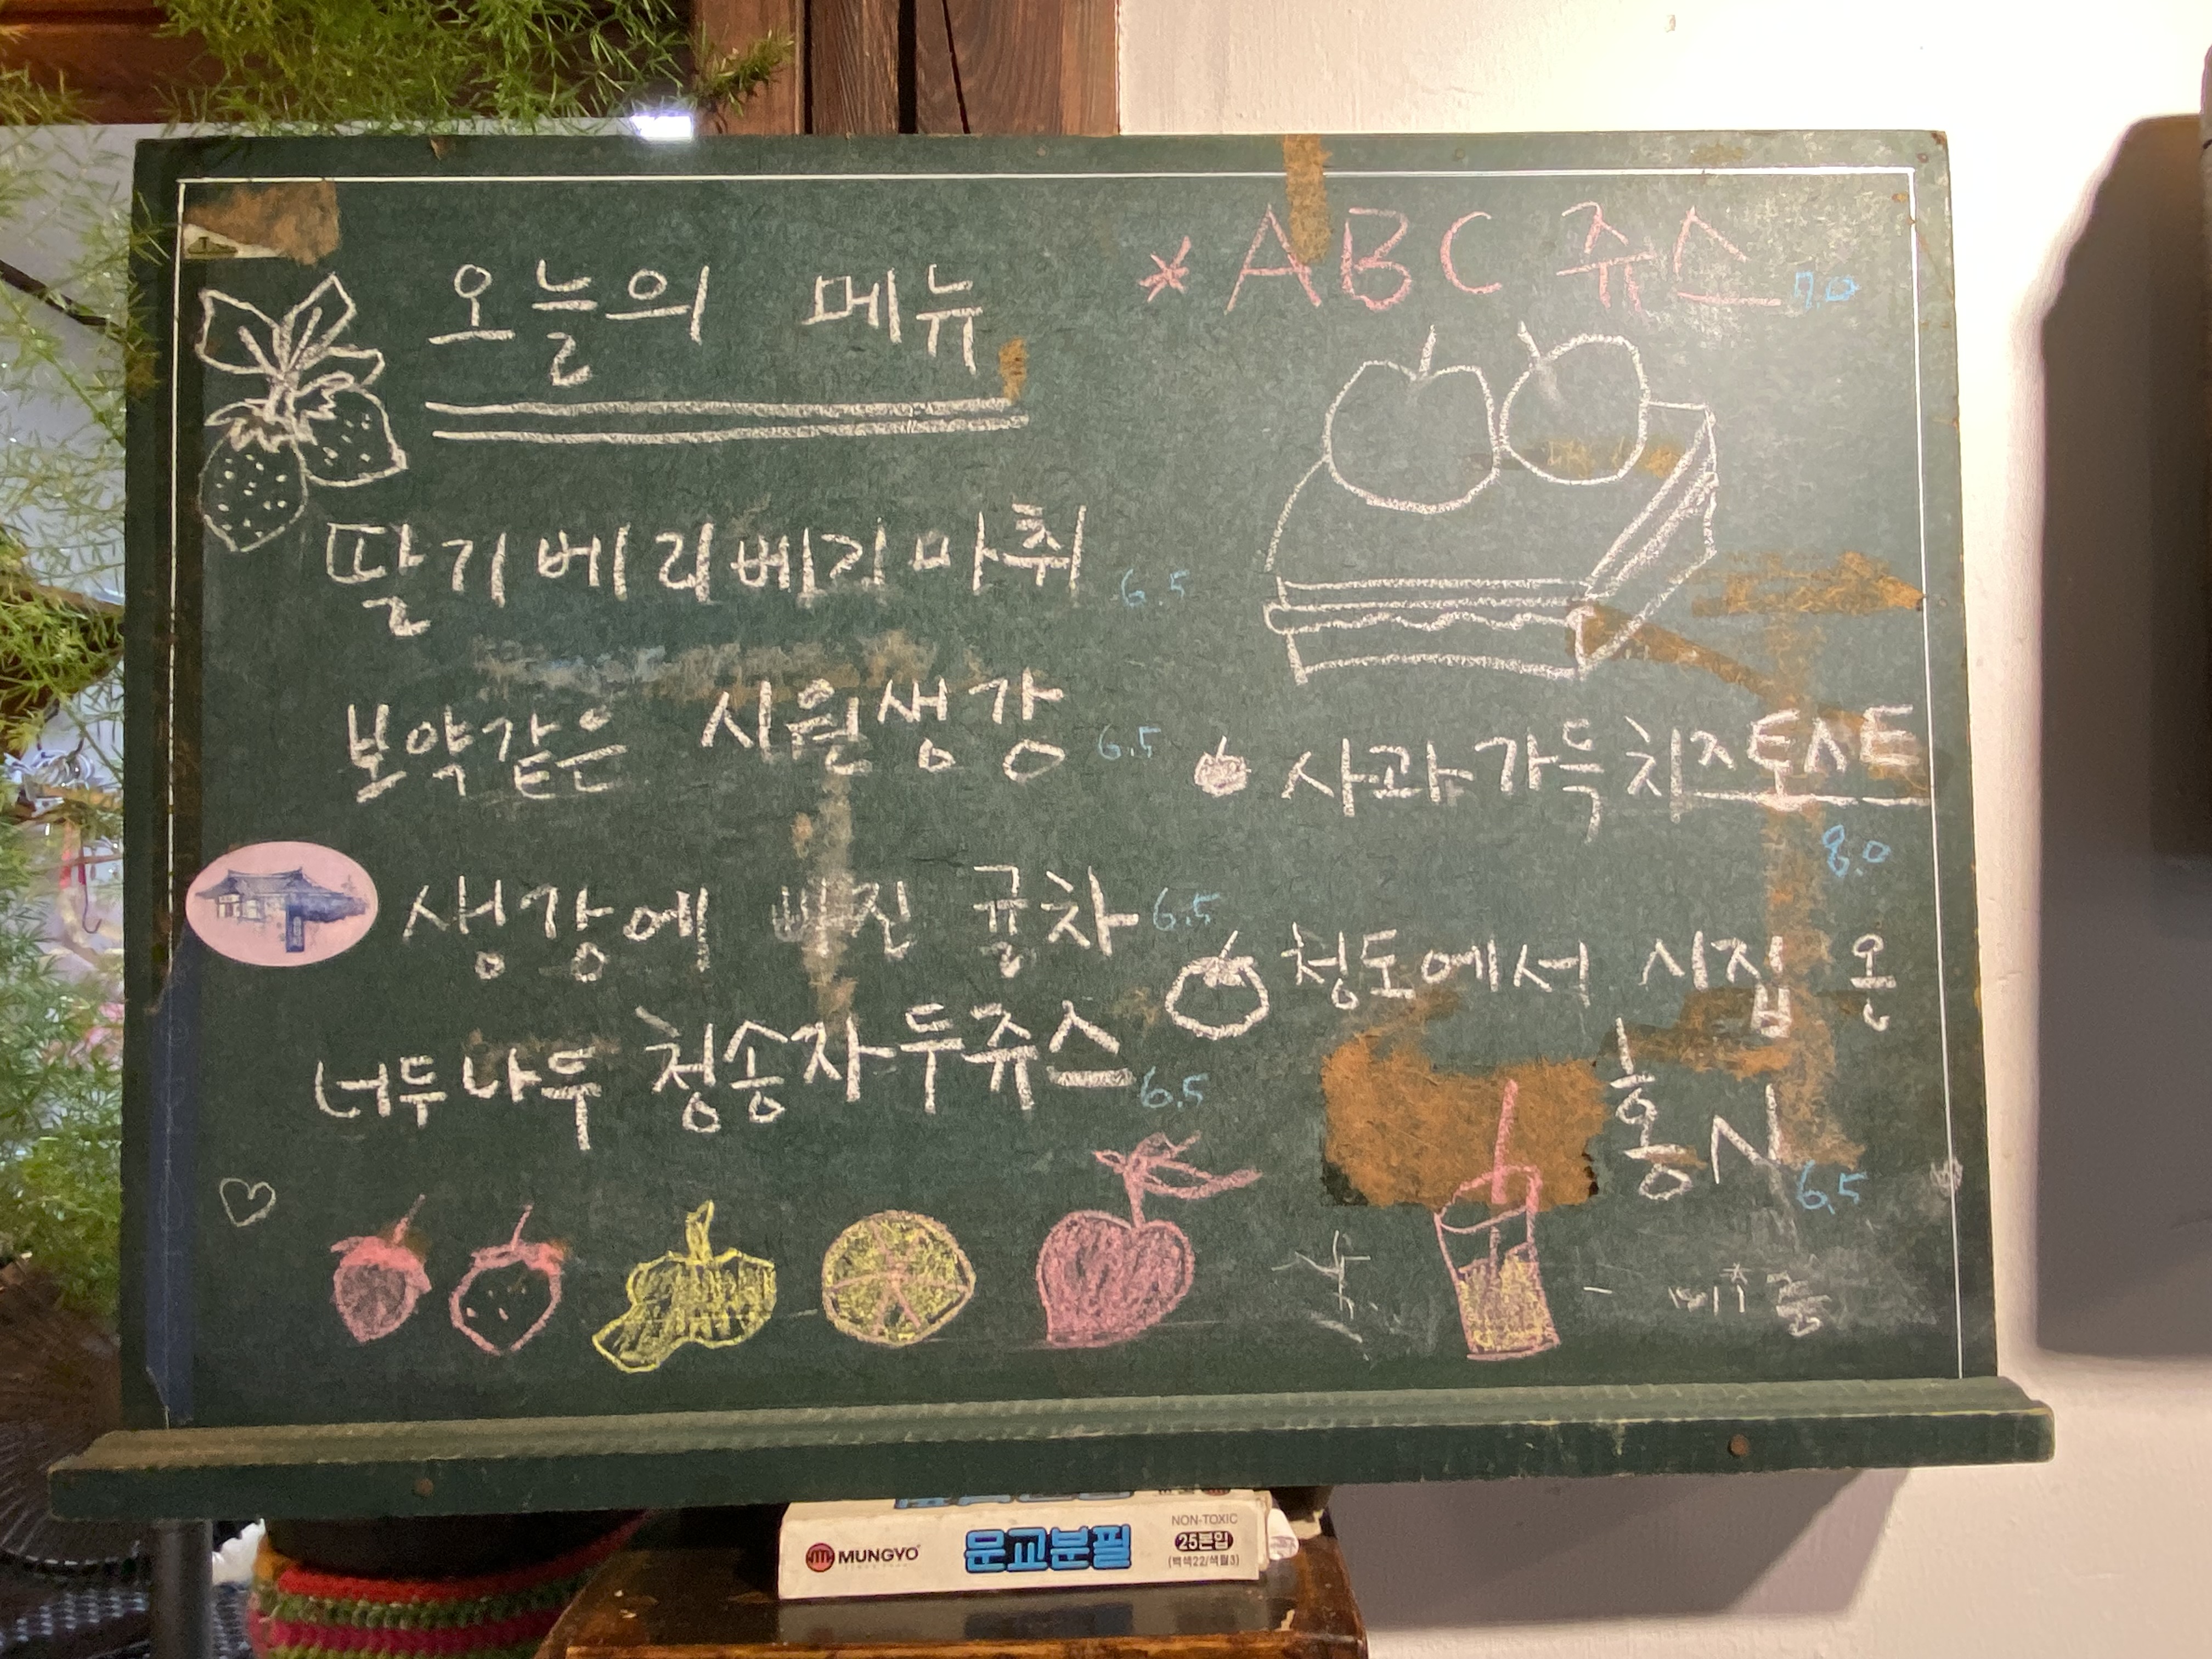 오늘의 메뉴
딸기베리베리마취 6.5
보약같은 시원생강 6.5
생강에 빠진 귤차 6.5
너두나두 청송자두쥬스 6.5
* ABC 쥬스 7.0
사과가득치즈토스트
8.0
청도에서 시집 온
홍시 6.5
MUNGYO
문교분필
NON-TOXIC
25본입
(백색22/색필3)